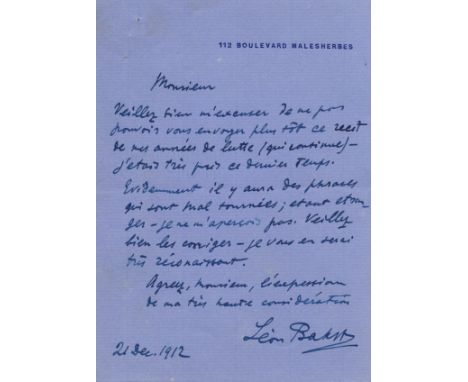 112 BOULEVARD MALESHERBES
Monsieur
Veillez bien m'excuser de ne pas
pouvoir vous envoyer plus tôt ce recit
de mes années de lutte (qui continue) –
j'etais très pris ce dernier temps.
Evidemment il y aura des phrases
qui sont mal tournées; etant etran-
ger – je ne m'aperçois pas. Veillez
bien les corriger – je vous en serai
très réconaissant.
Agreez, monsieur, l'expession
de ma très haute considération
Léon Bakst
21 Dec. 1912